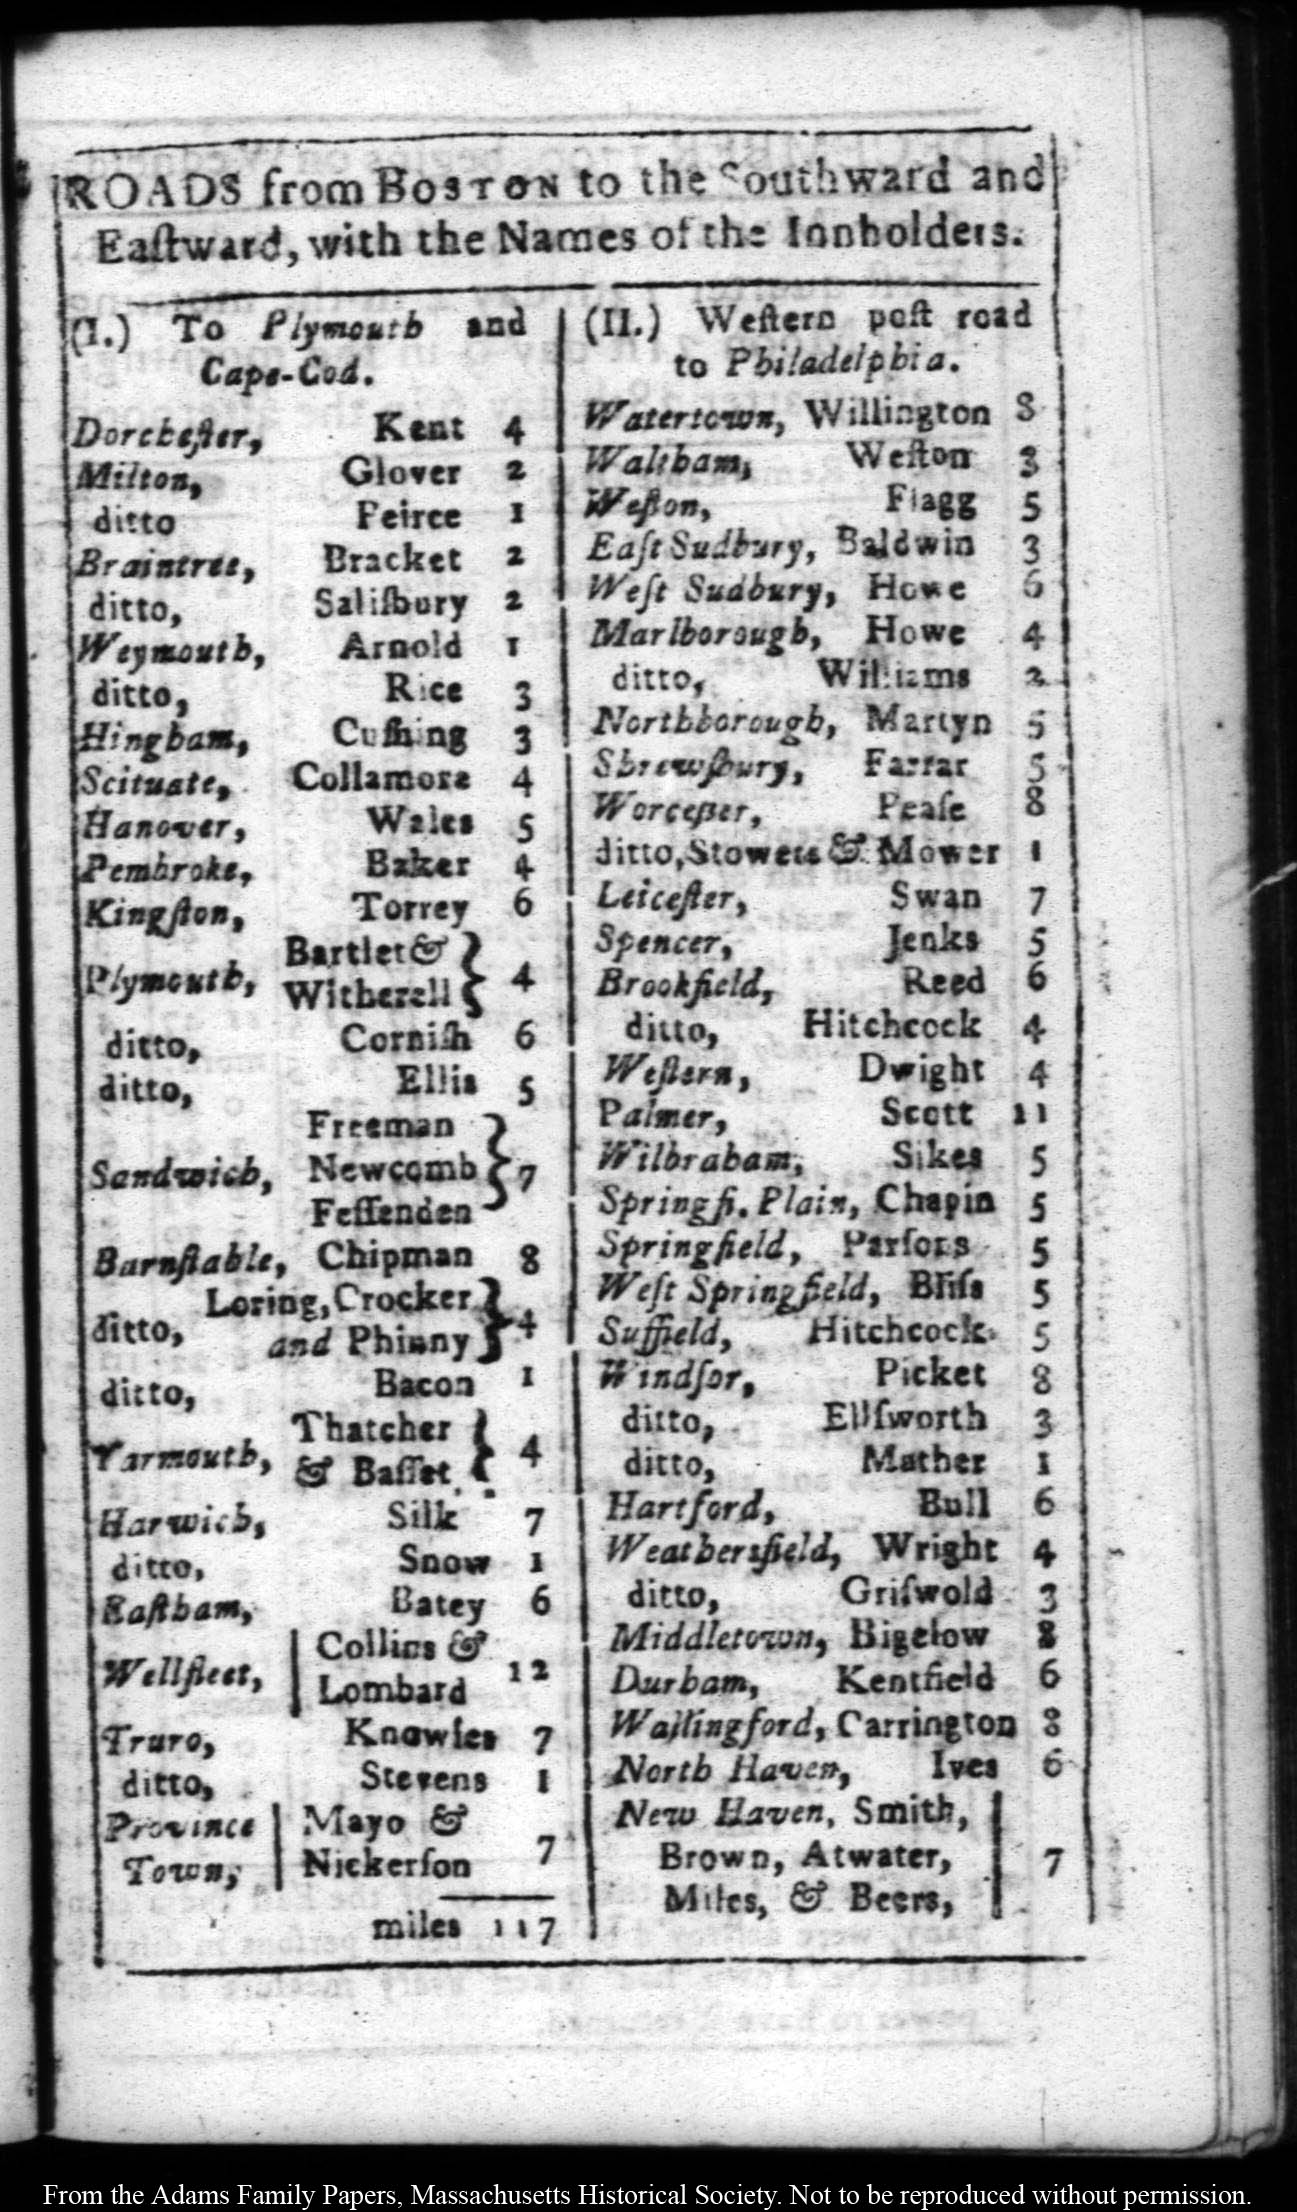 ROADS from BOSTON to the Southward and
Eaſtward, with the Names of the Innholders.
(I.) To Plymouth and
Cape-Cod.
Dorcheſter, Kent 4
Milton, Glover 2
ditto Peirce 1
Braintree, Bracket 2
ditto, Saliſbury 2
Weymouth, Arnold 1
ditto, Rice 3
Hingham, Cuſhing 3
Scituate, Collamore 4
Hanover, Wales 5
Pembroke, Baker 4
Kingſton, Torrey 6
Plymouth, Bartlet & Witherell } 4
ditto, Corniſh 6
ditto, Ellis 5
Freeman
Sandwich, Newcomb } 7
Feſſenden
Barnſtable, Chipman 8
Loring, Crocker
ditto, and Phinny } 4
ditto, Bacon 1
Yarmouth, Thatcher & Baſſet } 4
Harwich, Silk 7
ditto, Snow 1
Eaſtham, Batey 6
Wellfleet, | Collins & Lombard 12
Truro, Knowles 7
ditto, Stevens 1
Province | Mayo &
Town, | Nickerſon 7
miles 117
(II.) Weſtern poſt road
to Philadelphia.
Watertown, Willington 8
Waltham, Weſton 3
Weſton, Flagg 5
Eaſt Sudbury, Baldwin 3
Weſt Sudbury, Howe 6
Marlborough, Howe 4
ditto, Williams 2
Northborough, Martyn 5
Shrewſbury, Farrar 5
Worceſter, Peaſe 8
ditto, Stowers & Mower 1
Leiceſter, Swan 7
Spencer, Jenks 5
Brookfield, Reed 6
ditto, Hitchcock 4
Weſtern, Dwight 4
Palmer, Scott 11
Wilbraham, Sikes 5
Springfi. Plain, Chapin 5
Springfield, Parſons 5
Weſt Springfield, Bliſs 5
Suffield, Hitchcock 5
Windſor, Picket 8
ditto, Ellſworth 3
ditto, Mather 1
Hartford, Bull 6
Weathersfield, Wright 4
ditto, Griſwold 3
Middletown, Bigelow 8
Durham, Kentfield 6
Wallingford, Carrington 8
North Haven, Ives 6
New Haven, Smith, |
Brown, Atwater, | 7
Miles, & Beers, |
From the Adams Family Papers, Massachusetts Historical Society. Not to be reproduced without permission.